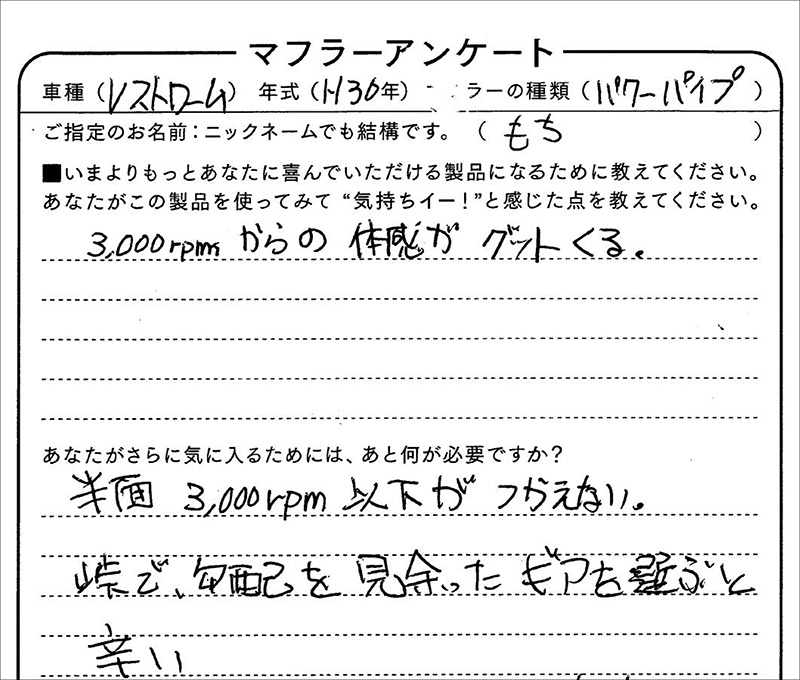 マフラーアンケート
車種（Vストローム） 年式（H30年） ラーの種類（パワーパイプ）
ご指定のお名前：ニックネームでも結構です。（もち）
■いまよりもっとあなたに喜んでいただける製品になるために教えてください。
あなたがこの製品を使ってみて“気持ちイー！”と感じた点を教えてください。
3,000rpmからの体感がグットくる。
あなたがさらに気に入るためには、あと何が必要ですか？
半面 3,000rpm以下がつかえない。
峠で、勾配を見余ったギアを選ぶと
辛い